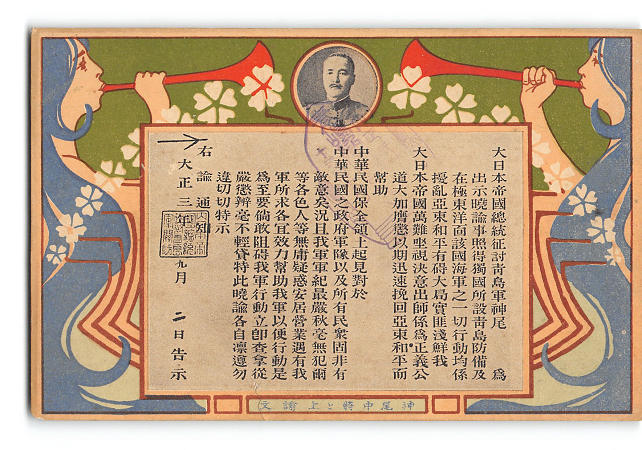 大日本帝國總統征討靑島軍神尾　爲
出示曉諭事照得獨國所設靑島防備及
在極東洋面該國海軍之一切行動均係
擾亂亞東和平有碍大局實匪淺鮮我
大日本帝國萬難坐視決意出師係爲正義公
道大加膺懲以期迅速挽回亞東和平而
幫助
中華民國保全領土起見對於
中華民國之政府軍隊以及所有民衆固非有
敵意矣況且我軍軍紀最嚴秋毫無犯爾
等各色人等無庸疑惑安居營業遇有我
軍所求各宜效力幫助我軍以便行動是
爲至要倘敢阻碍我軍行動立卽査拿從
嚴懲辨毫不輕貸特此曉諭各自凛遵勿
違切切特示
右諭通知
大正三年九月　二日告示
神尾中將と上諭文